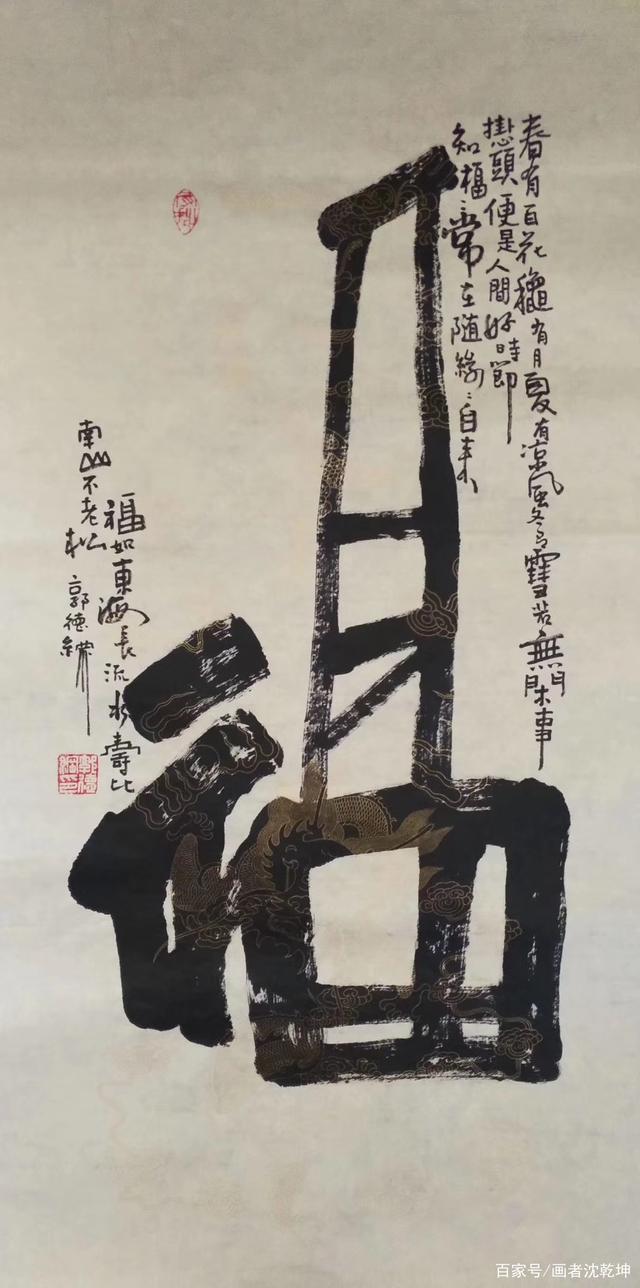 福
春有百花龝有月夏有凉風冬有雪若無閑事
掛心頭便是人間好時節
知福〻常在随緣〻自来
福如東海長流水壽比
南山不老松 郭德綱
郭德綱印
百家号/画者沈乾坤